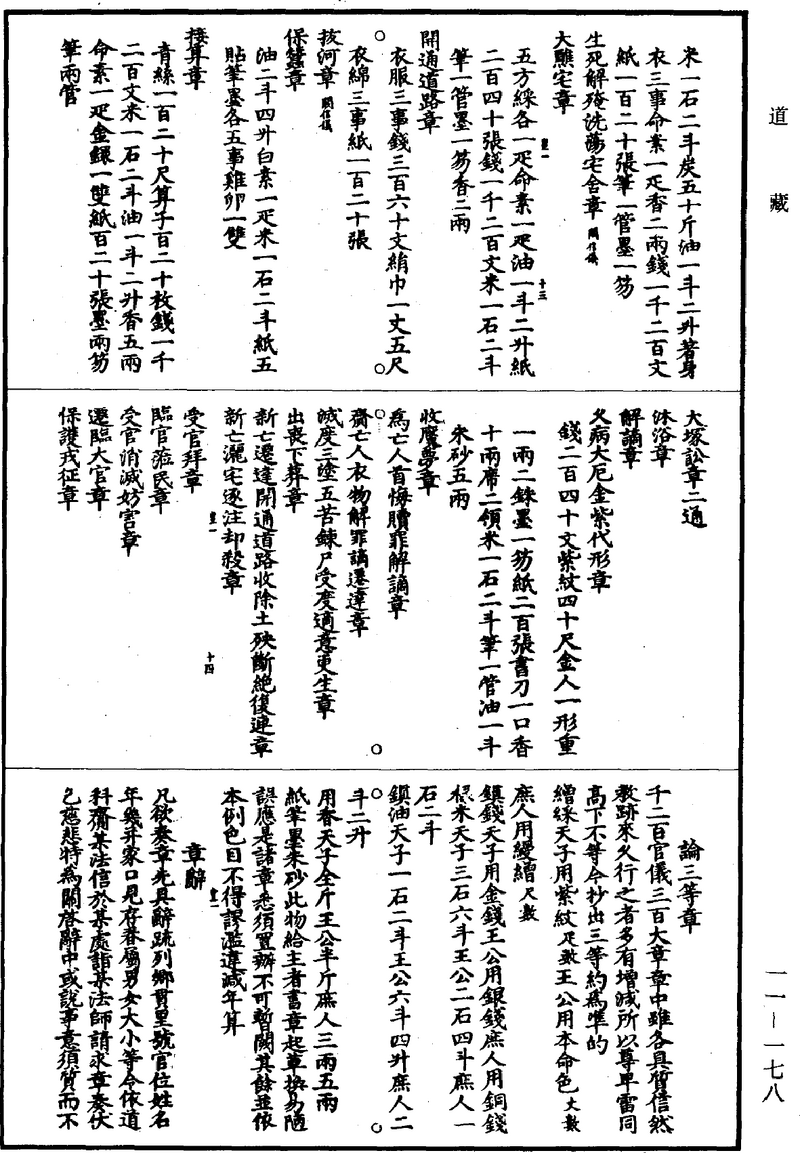 道藏
米一石二斗炭五十斤油一斗二升著身
衣三事命素一疋香二兩錢一千二百文
紙一百二十張筆一管墨一笏
生死解殗洗蕩宅舍章 闕信儀
大醮宅章
五方綵各一疋命素一疋油一斗二升紙
二百四十張錢一千二百文米一石二斗
筆一管墨一笏香二兩
開通道路章
衣服三事錢三百六十文絹巾一丈五尺
衣綿三事紙一百二十張
拔河章 闕信儀
保蠶章
油二斗四升白素一疋米一石二斗紙五
貼筆墨各五事雞卵一雙
接算章
青絲一百二十尺算子百二十枚錢一千
二百文米一石二斗油一斗二升香五兩
命素一疋金鐶一雙紙百二十張墨兩笏
筆兩管
十三
大塚訟章二通
沐浴章
解謫章
久病大厄金紫代形章
錢二百四十文紫紋四十尺金人一形重
一兩二銖墨一笏紙二百張書刀一口香
十兩席二領米一石二斗筆一管油一斗
朱砂五兩
收魘夢章
為亡人首悔贖罪解謫章
齎亡人衣物解罪謫遷達章
滅度三塗五苦鍊尸受度適意更生章
出喪下葬章
新亡遷達開通道路收除土殃斷絕復連章
新亡灑宅逐注却殺章
十四
受官拜章
臨官蒞民章
受官消滅妨害章
遷臨大官章
保護戎征章
論三等章
千二百官儀三百大章章中雖各具質信然
教跡來久行之者多有增減所以尊卑雷同
高下不等今抄出三等約為準的
繒綵天子用紫紋 疋數 王公用本命色 丈數
庶人用縵繒 尺數
鎮錢天子用金錢王公用銀錢庶人用銅錢
粮米天子三石六斗王公二石四斗庶人一
石二斗
鎮油天子一石二斗王公六斗四升庶人二
斗二升
用香天子全斤王公半斤庶人三兩五兩
紙筆墨朱砂此物給主者書章起草換易陋
誤應是諸章悉須置辦不可暫闕其餘並依
本例色目不得謬濫違減年算
章辭
凡欲奏章先具辭疏列鄉貫里號官位姓名
年幾并家口見存眷屬男女大小等令依道
科齎某法信於某處詣某法師請求章奏伏
乞慈悲特為關啓辭中或說事意須質而不
一一—一七八